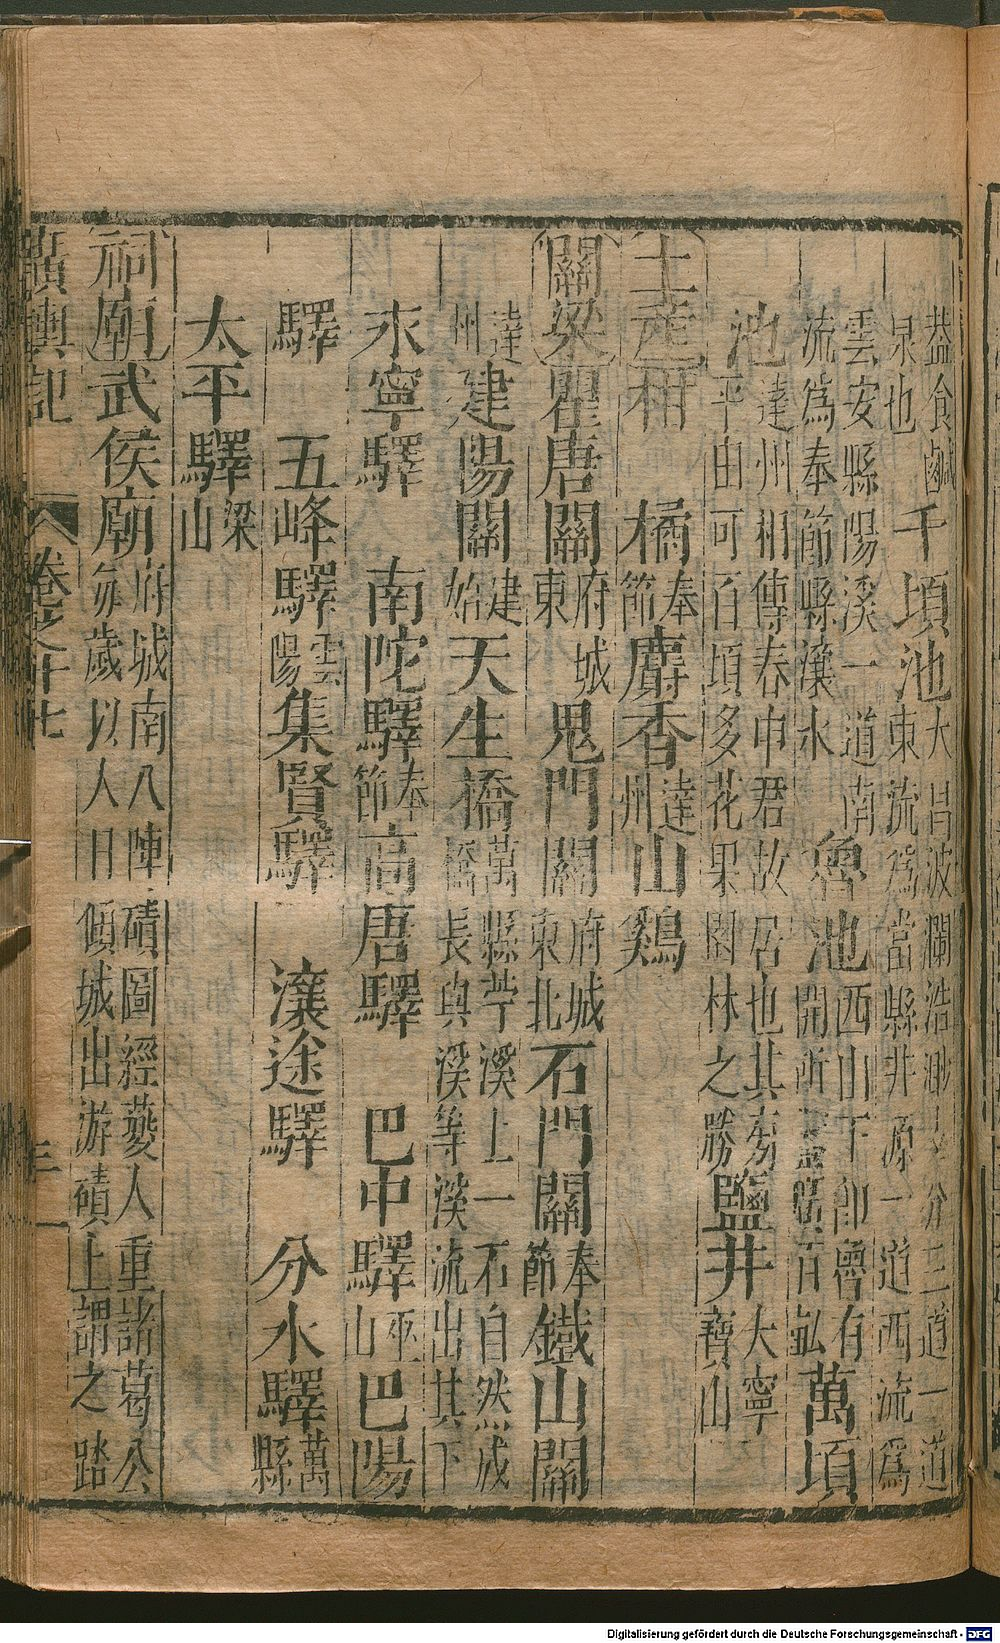 葢食鹹泉也 千頃池 大昌波瀾浩渺分三道一道東流爲當縣井源一道西流爲
雲安縣陽溪一道南流爲奉節縣瀼水 魯池 西山下卽魯有開所百畝 萬頃
池 達州相傳春申君故居也其旁平由可百頃多花果園林之勝 鹽井 大寧寶山
土產 柑 橘 奉節 麝香 達州 山鷄
關梁 瞿唐關 府城東 鬼門關 府城東北 石門關 奉節 鐵山關
達州 建陽關 建始 天生橋 萬縣苧溪上一石自然成橋長與溪等溪流出其下
永寧驛 南陀驛 奉節 高唐驛 巴中驛 巫山 巴陽
驛 五峰驛 雲陽 集賢驛 瀼途驛 分水驛 萬縣
太平驛 梁山
祠廟 武侯廟 府城南八陣磧圖經夔人重諸葛公每歲以人日傾城出游磧上謂之踏
廣輿記 卷之十七 三
Digitalisierung gefördert durch die Deutsche Forschungsgemeinschaft - DFG